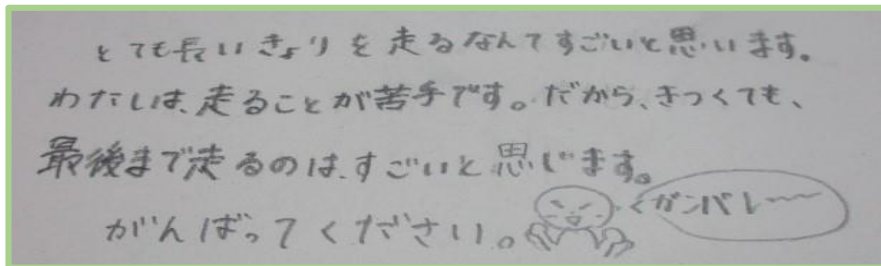 とても長いきょりを走るなんてすごいと思います。
わたしは、走ることが苦手です。だから、きつくても、
最後まで走るのは、すごいと思います。
がんばってください。
ガンバレ〜〜